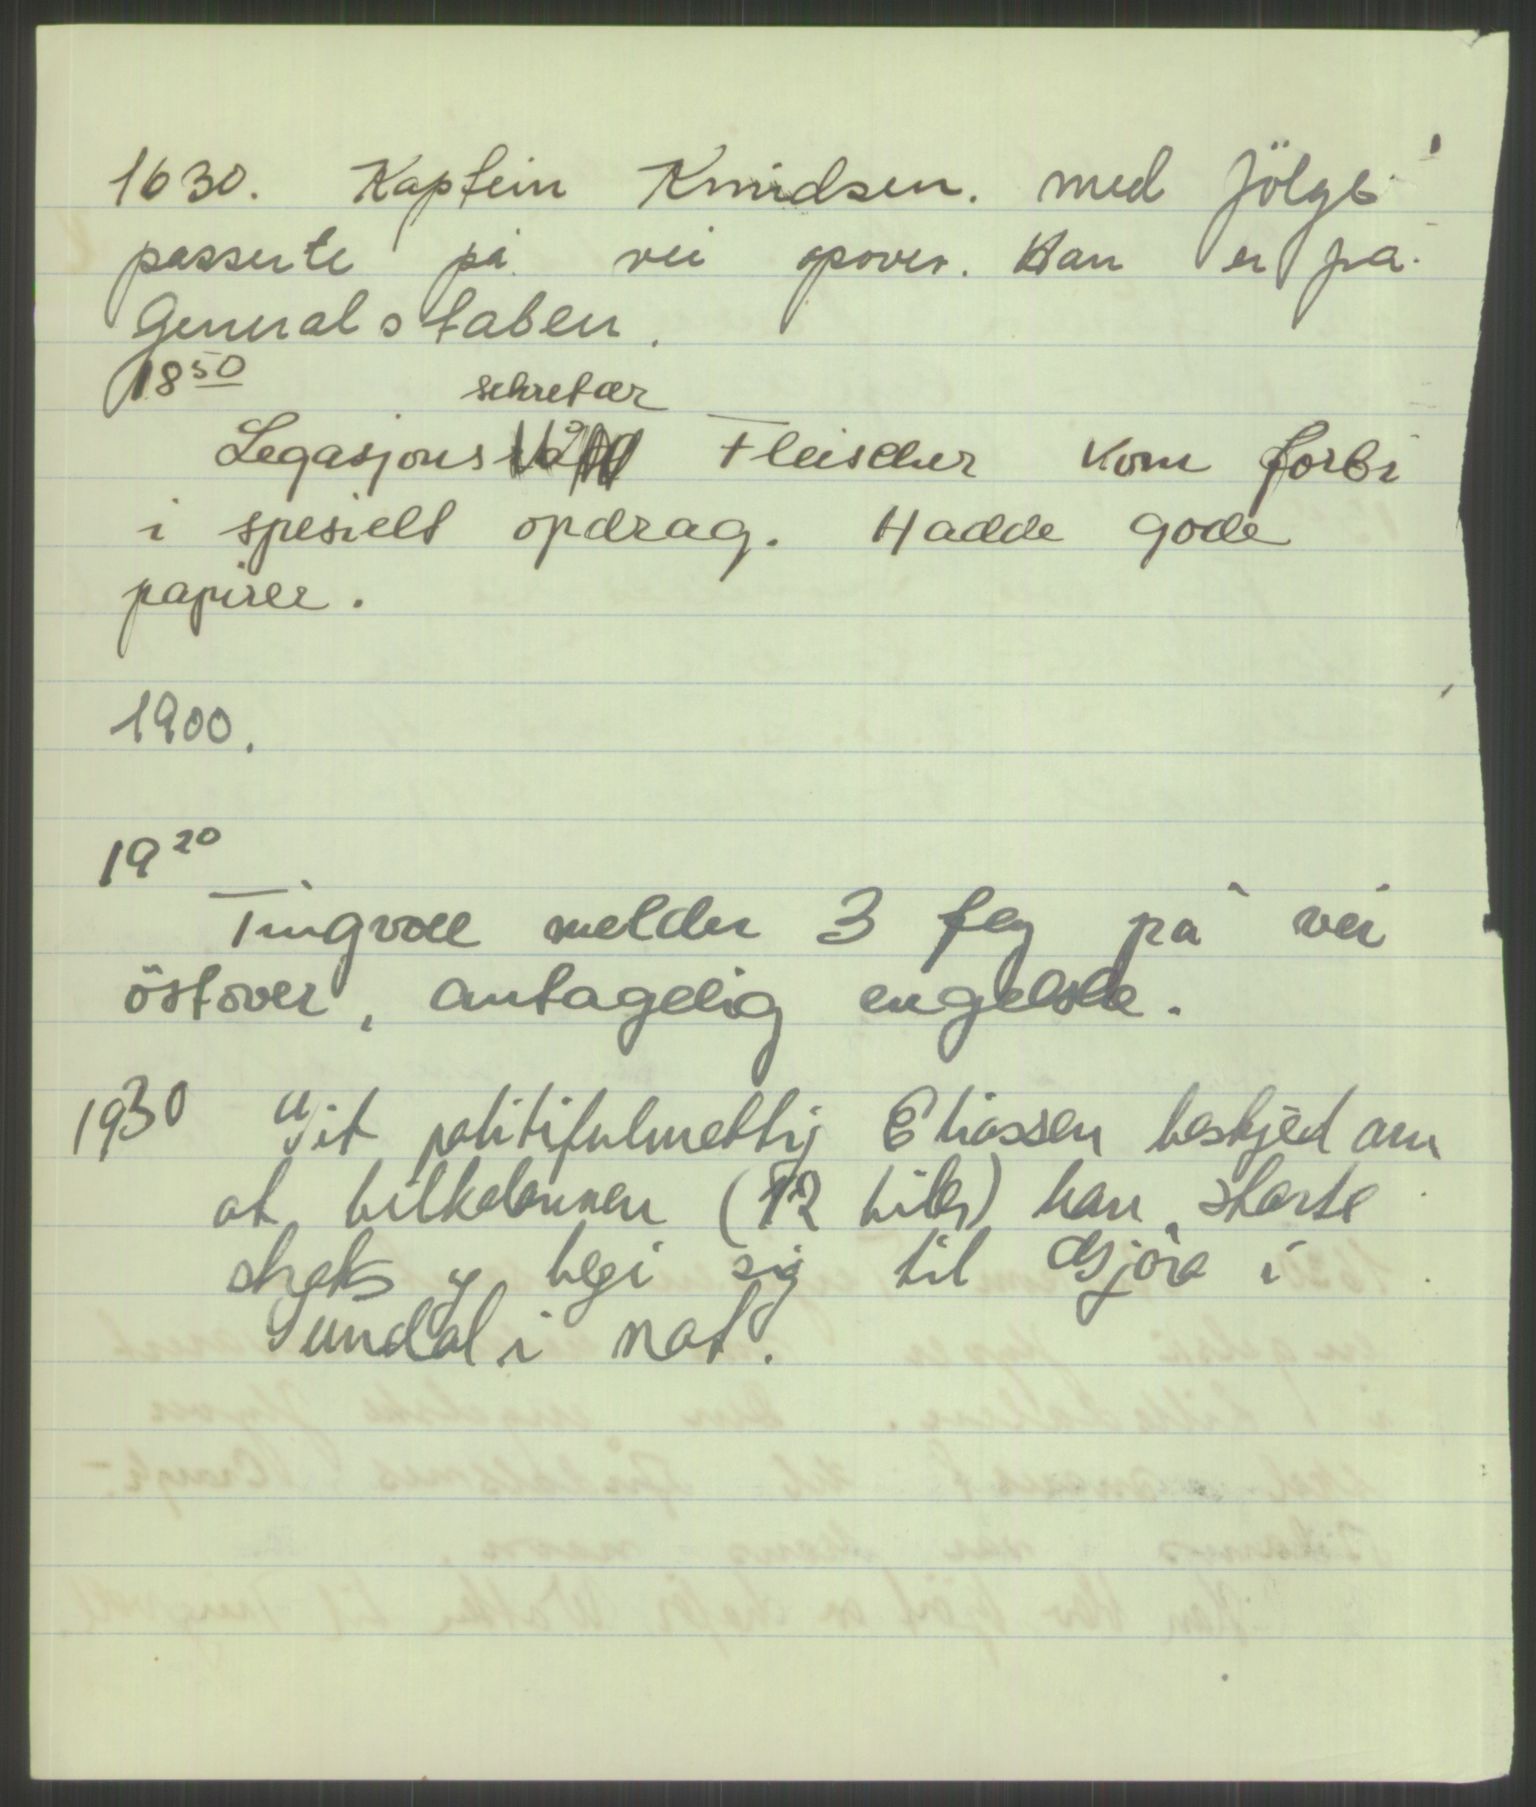 1630. Kaptein Knudsen. med följe
passerte på vei opover. Han er fra
Generalstaben.
18 50
sekretær
Legasjons Fleischer kom forbi
i spesielt opdrag. Hadde gode
papirer.
1900.
19 20
Tingvoll melder 3 fly på vei
östover, antagelig engelske.
1930 Git politifulmektig Eliassen beskjed om
at bilkolonnen (12 biler) kan starte
straks og begi sig til Gjöra i
Sundal i nat.